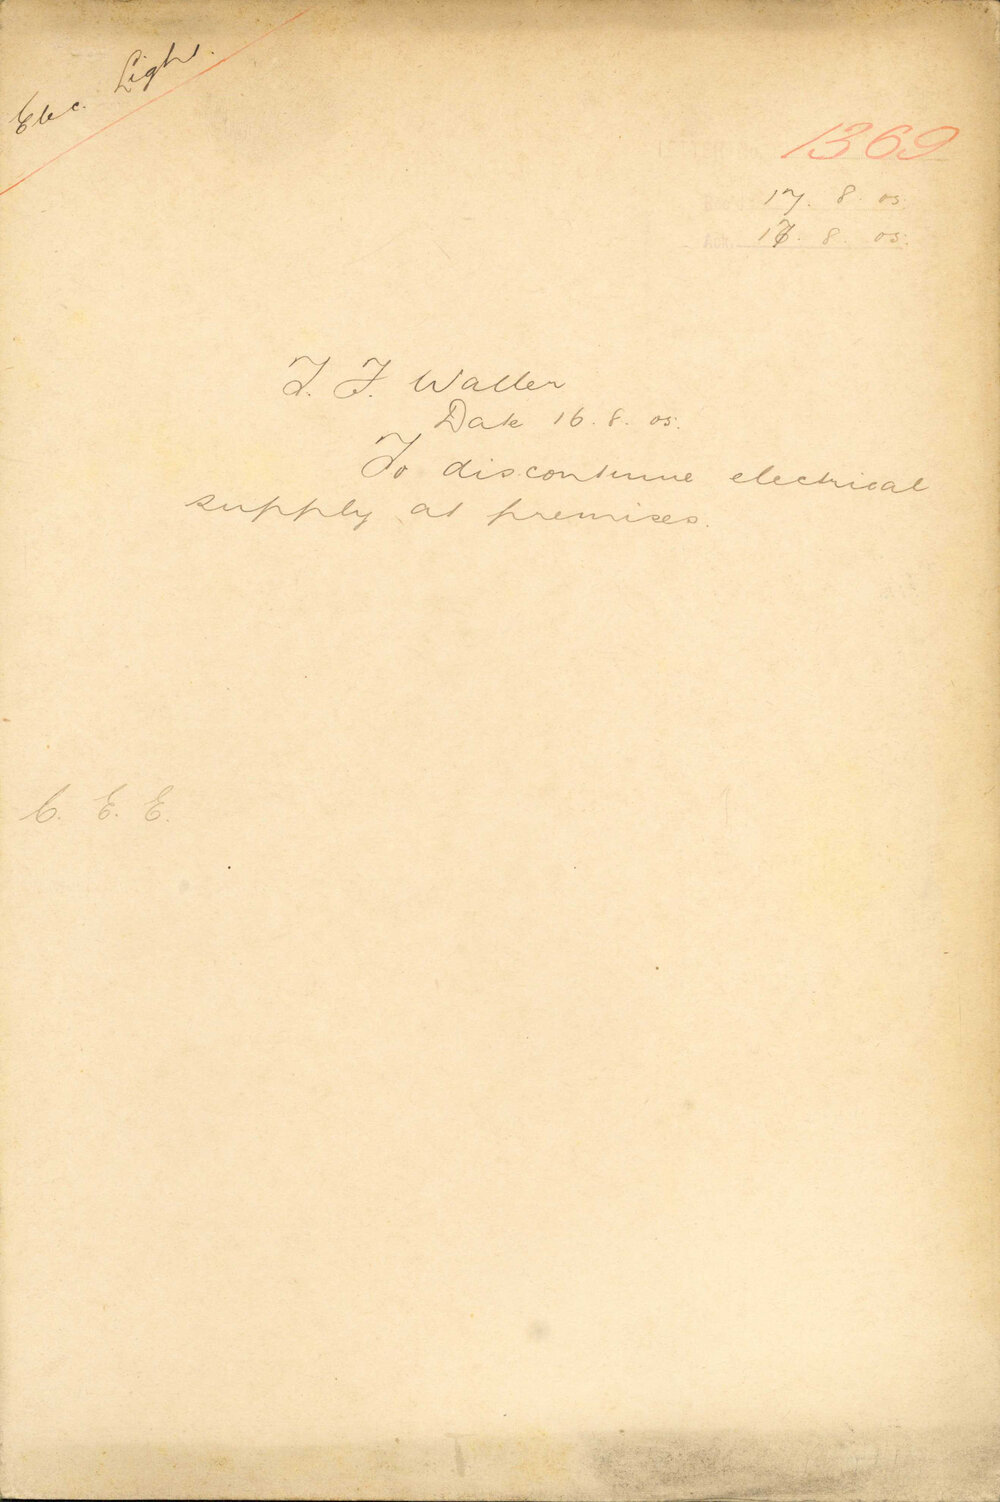 Elec. Light.
1369
17. 8. 05.
Ack. 17. 8. 05.
T. F. Waller
Date 16. 8. 05.
To discontinue electrical
supply at premises.
C. E. E.